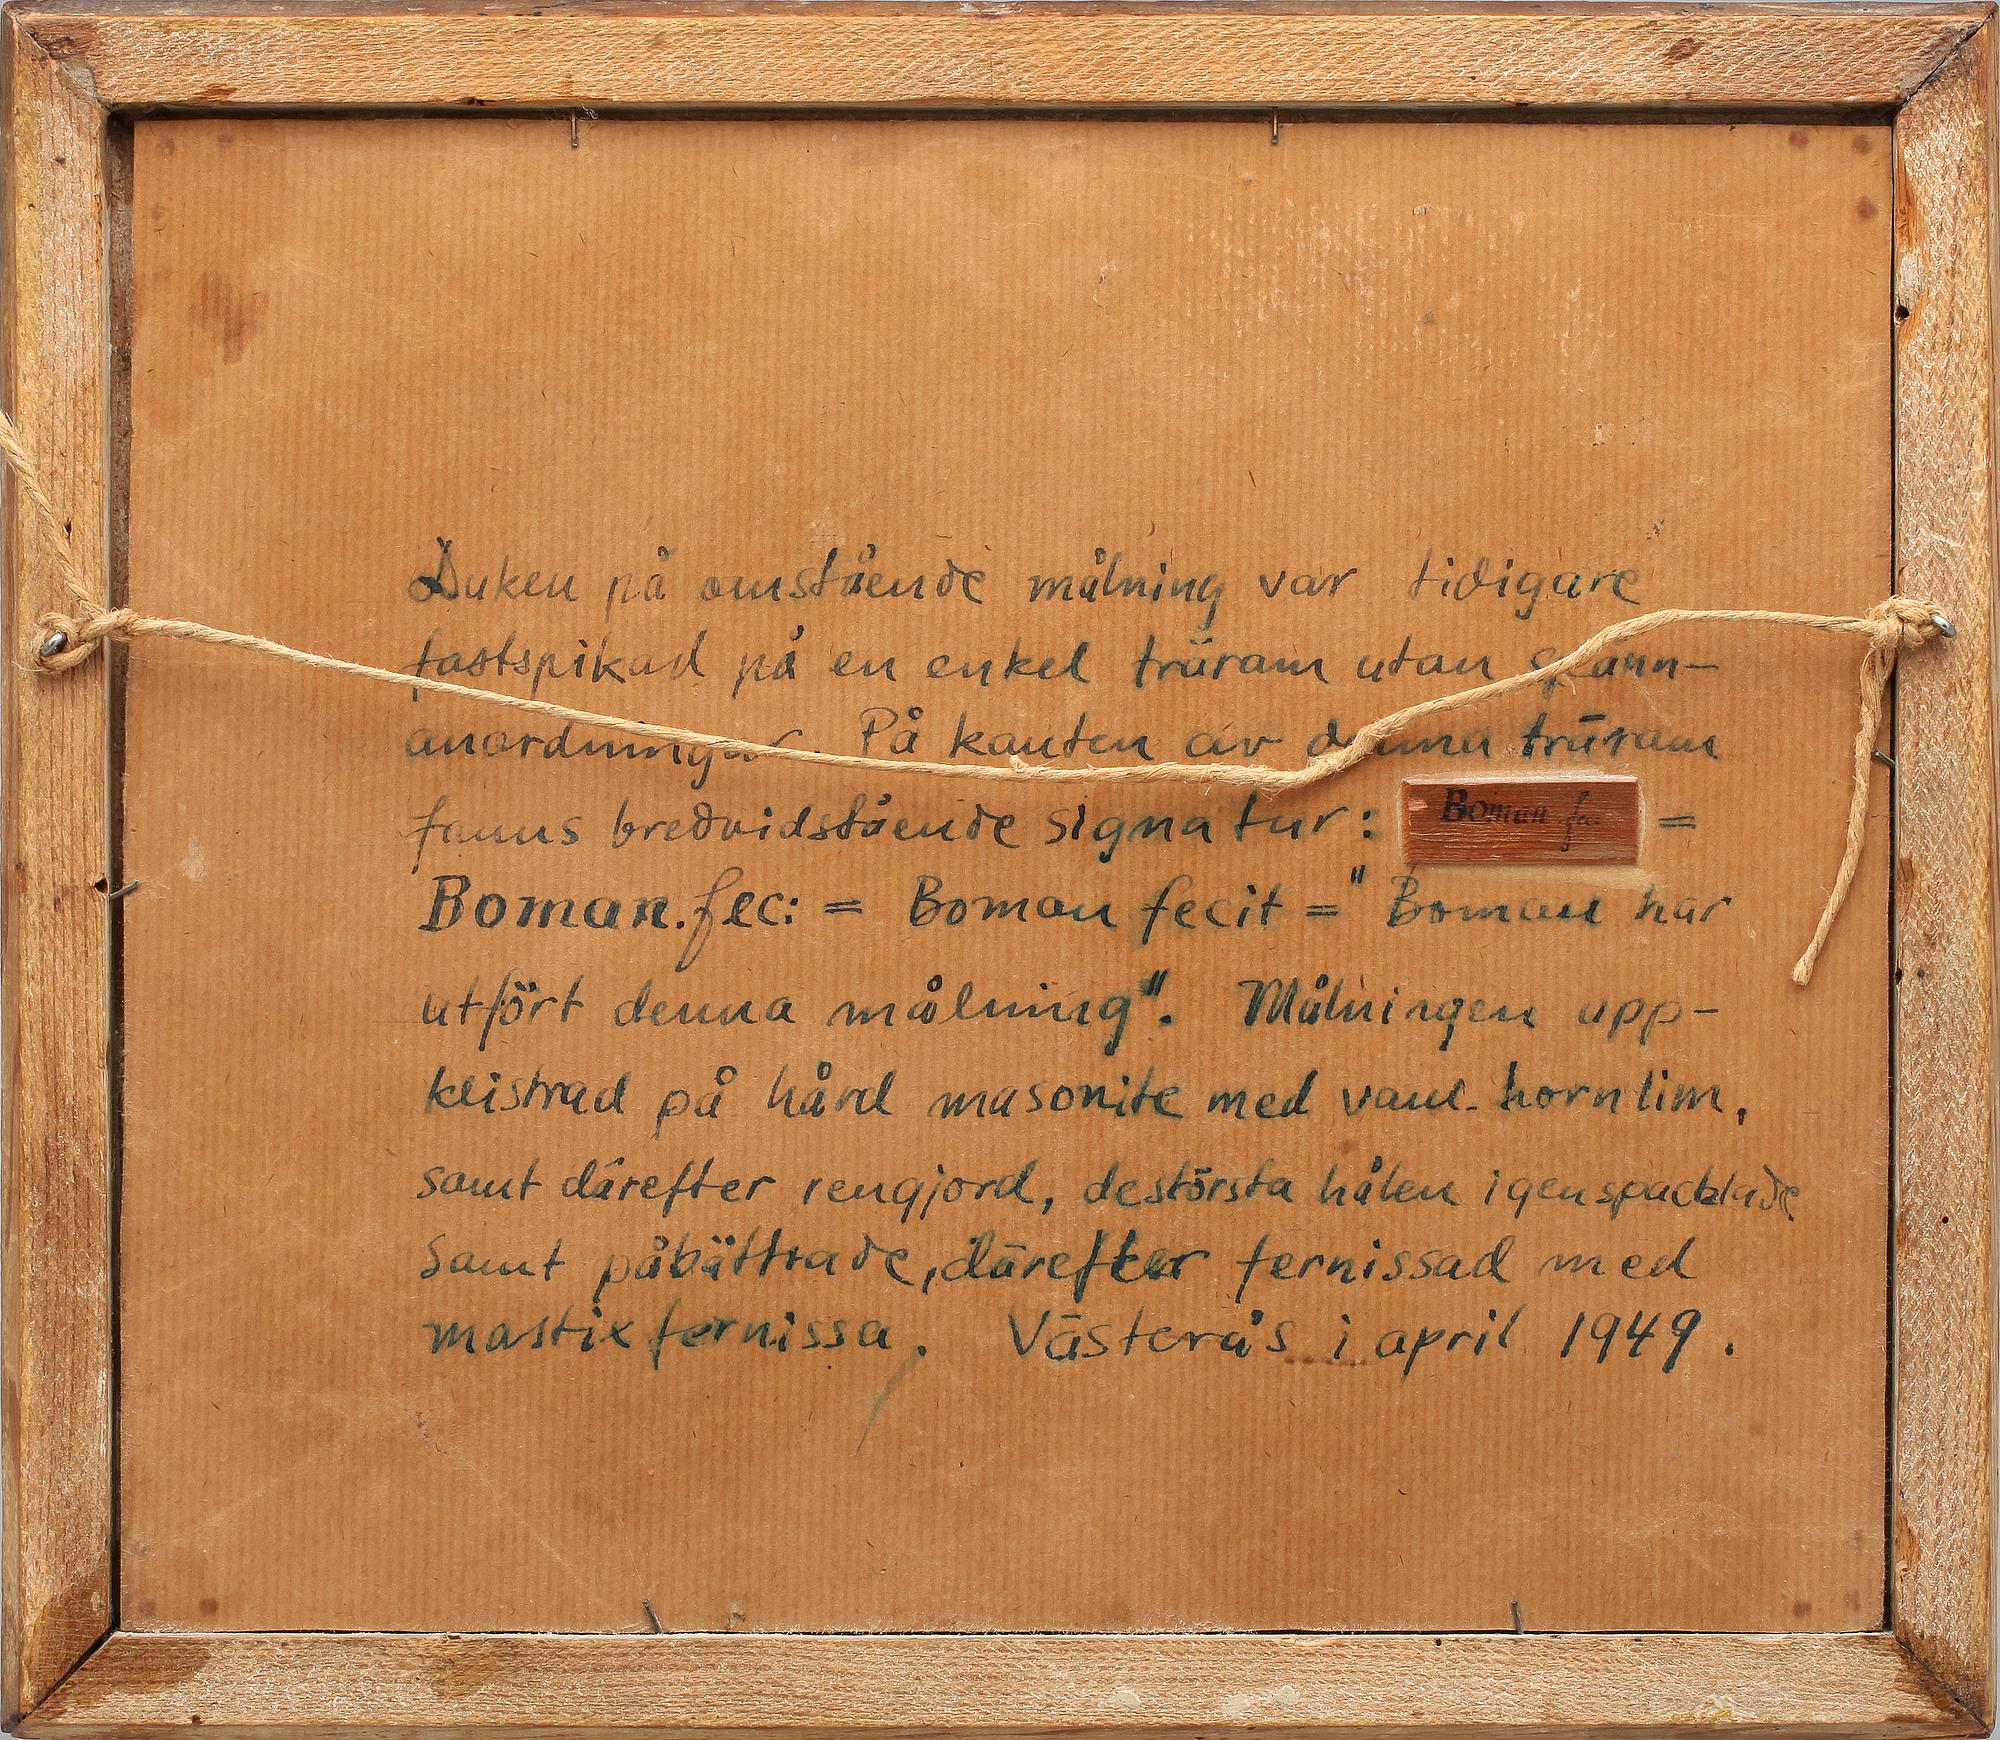 Duken på omstående målning var tidigare
fastspikad på en enkel träram utan spänn-
anordningar. På kanten av denna träram
fanns bredvidstående signatur: Boman. fec: =
Boman. fec: = Boman fecit = "Boman har
utfört denna målning". Målningen upp-
klistrad på hård masonite med vanl. hornlim,
samt därefter rengjord, de största hålen igenspacklade
samt påbättrade, därefter fernissad med
mastixfernissa. Västerås i april 1949.